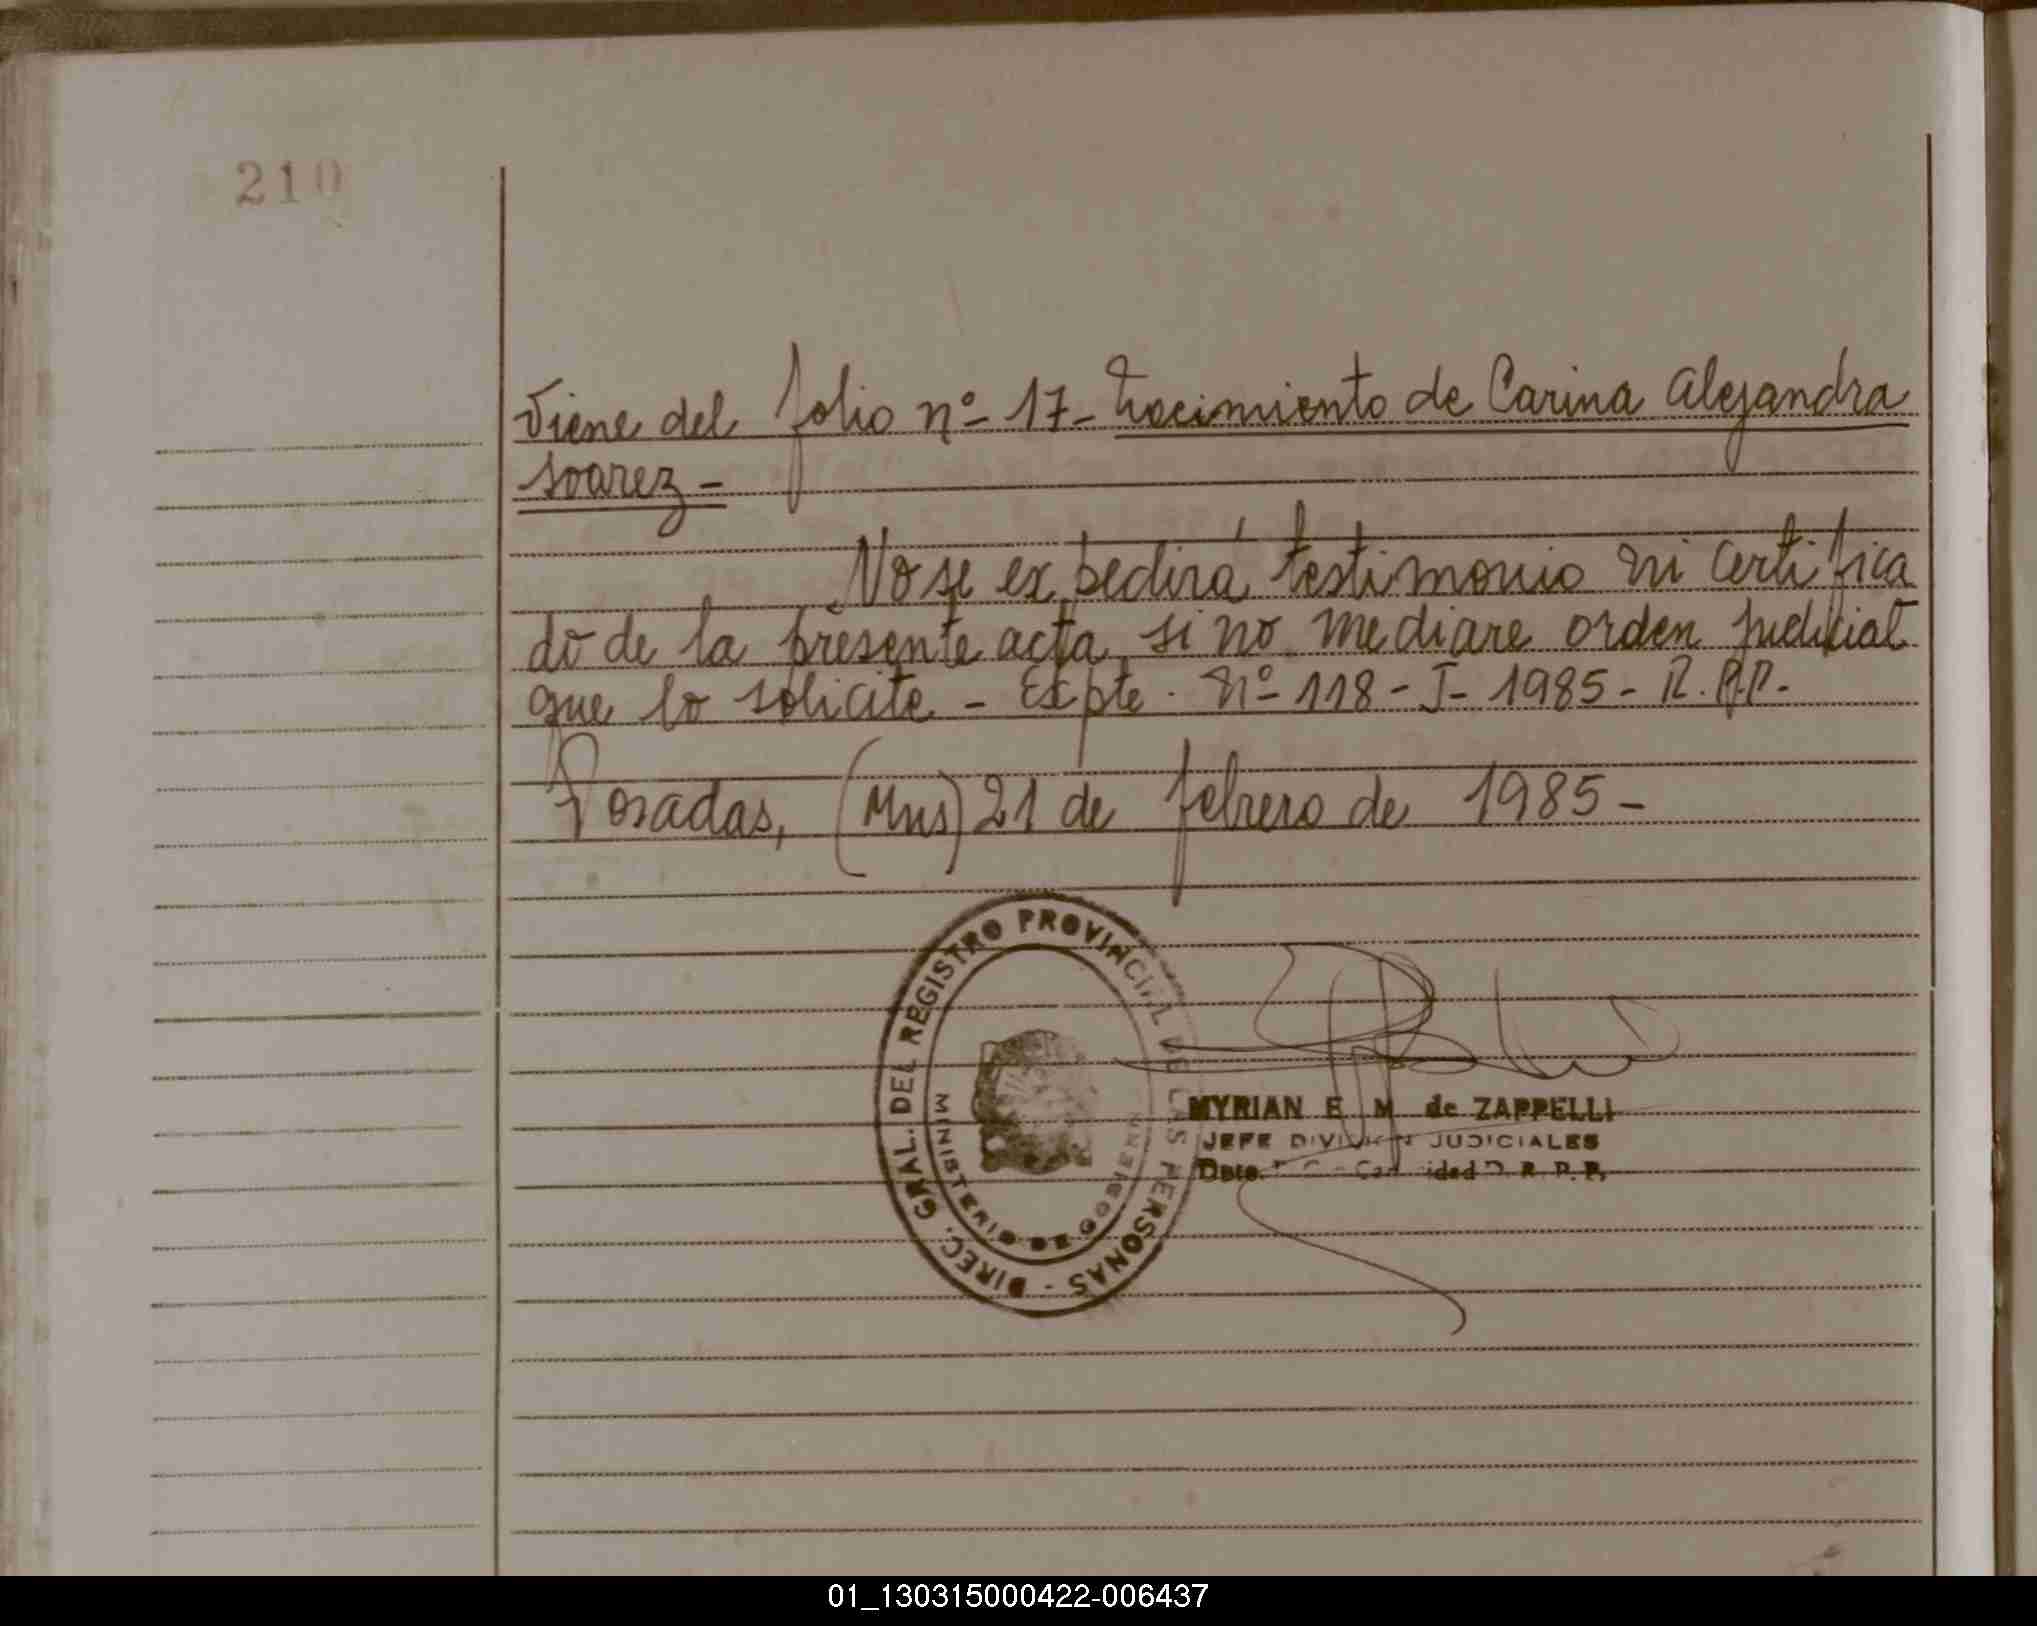 210
Viene del folio nº 17 - Nacimiento de Carina Alejandra
Soarez -
No se expedirá testimonio ni certifica
do de la presente acta si no mediare orden judicial
que lo solicite - Expte. Nº 118 - J - 1985 - R.P.P.
Posadas, (Mns) 21 de febrero de 1985 -
DIREC. GRAL. DEL REGISTRO PROVINCIAL DE LAS PERSONAS -
MINISTERIO DE GOBIERNO
MYRIAN E. M. de ZAPPELLI
JEFE DIVISION JUDICIALES
Dpto.
01_130315000422-006437